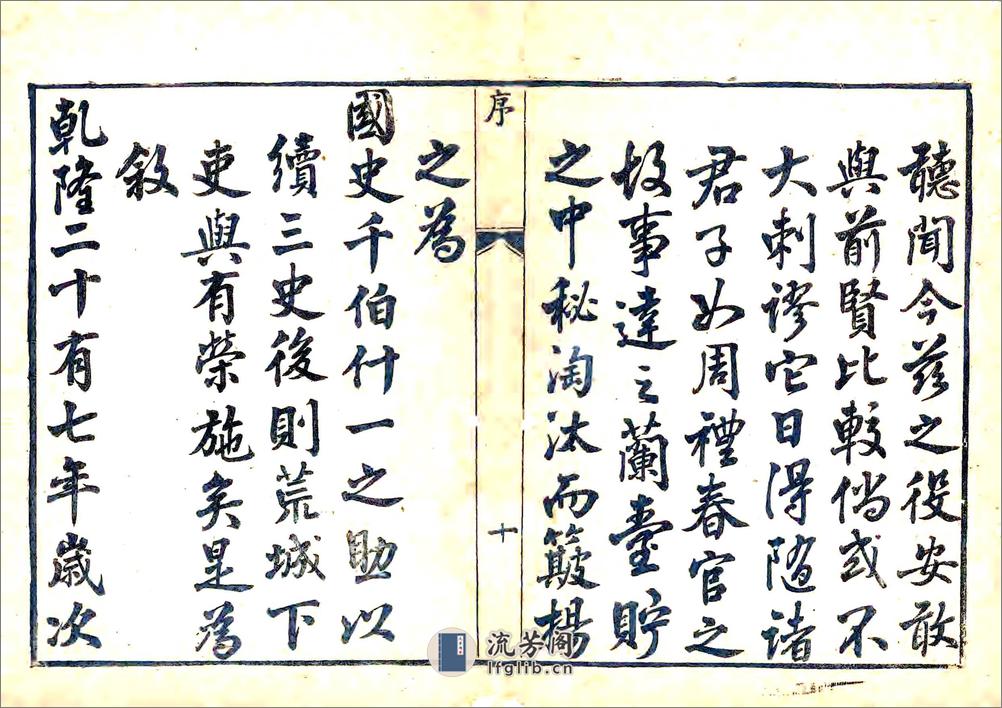 聽聞今茲之役安敢
與前賢比較倘或不
大刺謬它日得隨諸
君子如周禮春官之
故事達之蘭臺貯
之中秘淘汰而簸揚
序
十
之為
國史千伯什一之助以
續三史後則荒城下
吏與有榮施矣是為
敘
乾隆二十有七年歲次
流芳阁
lfglib.cn